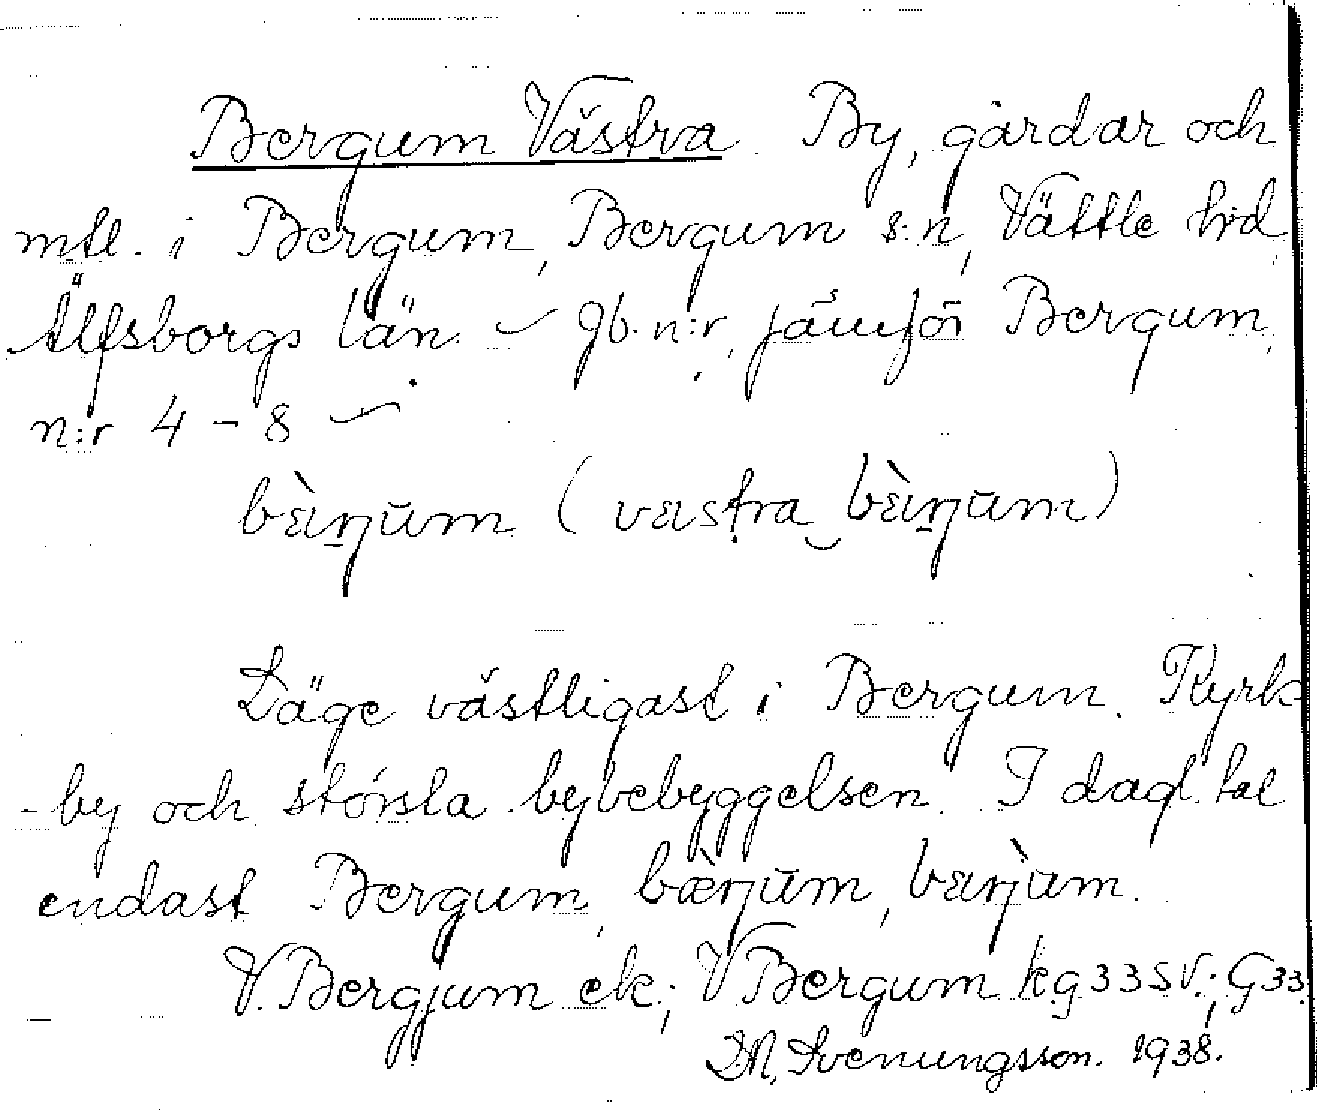 Bergum Västra. By, gårdar och
mtl. i Bergum, Bergum s:n, Vättle hrd,
Älfsborgs län. – Jb. n:r, jämför Bergum,
n:r 4 – 8 –
bὲɩŋūm (vɛɩstra‿bὲɩŋūm)
Läge västligast i Bergum. Kyrk-
-by och största bybebyggelsen. I dagl. tal
endast Bergum, bæ̀ŋūm, bɛɩŋ̀ūm.
V. Bergjum ek; V Bergum kg 33 SV; G33.
D.N. Svenungsson. 1938.